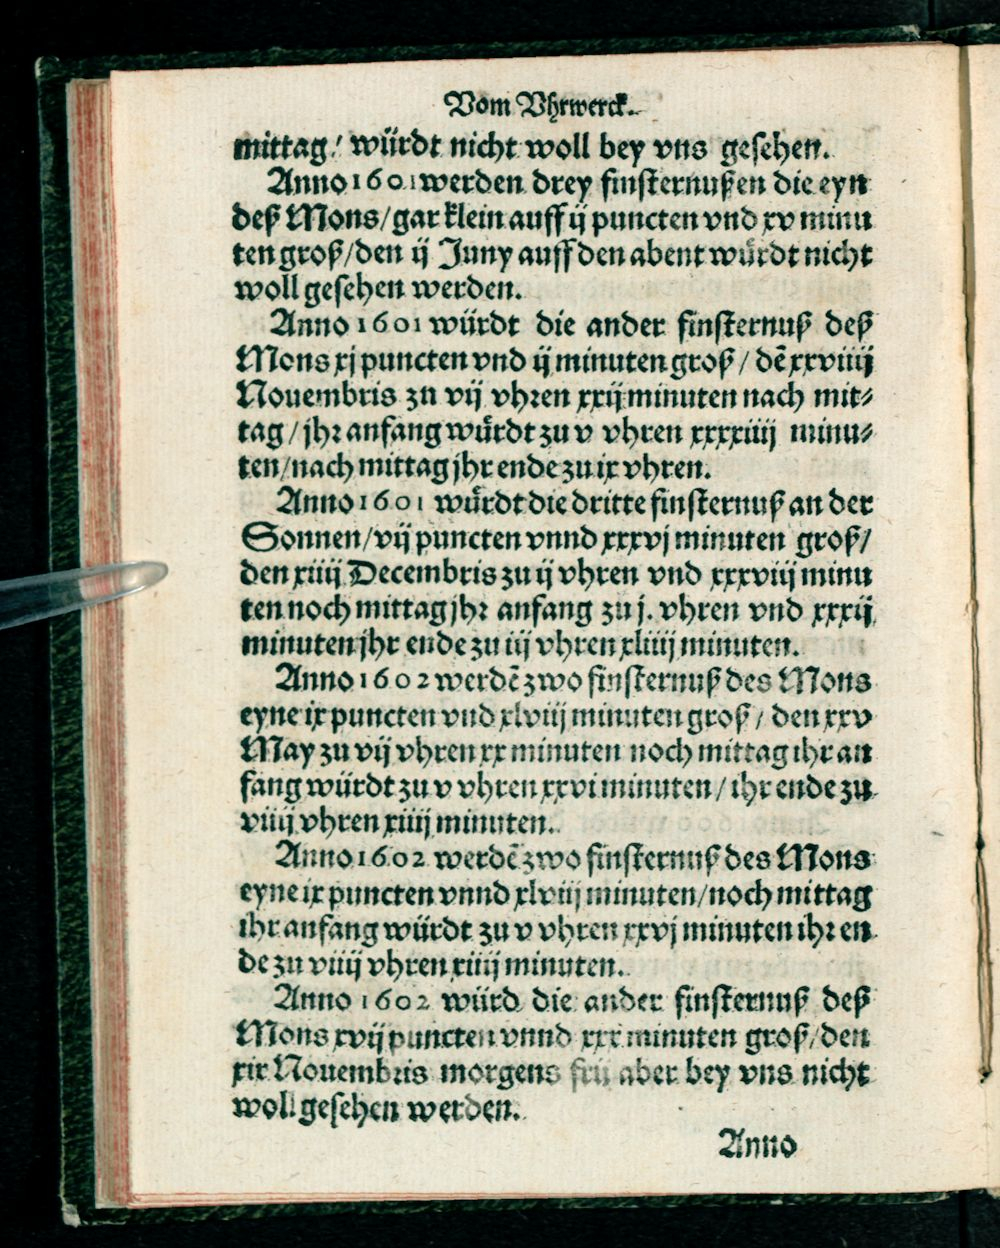 Vom Vhrwerck.
mittag/ würdt nicht woll bey vns gesehen.
Anno 1601 werden drey finsternußen die eyn
deß Mons/gar klein auff ij puncten vnd xv minu
ten groß/den ij Juny auff den abent wuͤrdt nicht
woll gesehen werden.
Anno 1601 würdt die ander finsternuß deß
Mons xj puncten vnd ij minuten groß/ dẽ xxviiij
Nouembris zu vij vhren xxij minuten nach mit⸗
tag/jhr anfang wuͤrdt zu v vhren xxxxiiij minu⸗
ten/nach mittag jhr ende zu ix vhren.
Anno 1601 wuͤrdt die dritte finsternuß an der
Sonnen/vij puncten vnnd xxxvj minuten groß/
den xiiij Decembris zu ij vhren vnd xxxviij minu
ten noch mittag jhr anfang zu j. vhren vnd xxxij
minuten jhr ende zu iij vhren xliiij minuten.
Anno 1602 werdẽ zwo finsternuß des Mons
eyne ix puncten vnd xlviij minuten groß/ den xxv
May zu vij vhren xx minuten noch mittag ihr an
fang würdt zu v vhren xxvi minuten/ ihr ende zu
viiij vhren xiiij minuten.
Anno 1602 werdẽ zwo finsternuß des Mons
eyne ix puncten vnnd xlviij minuten/noch mittag
ihr anfang würdt zu v vhren xxvj minuten ihr en
de zu viiij vhren xiiij minuten.
Anno 1602 würd die ander finsternuß deß
Mons xvij puncten vnnd xxx minuten groß/den
xix Nouembris morgens frü aber bey vns nicht
woll gesehen werden.
Anno